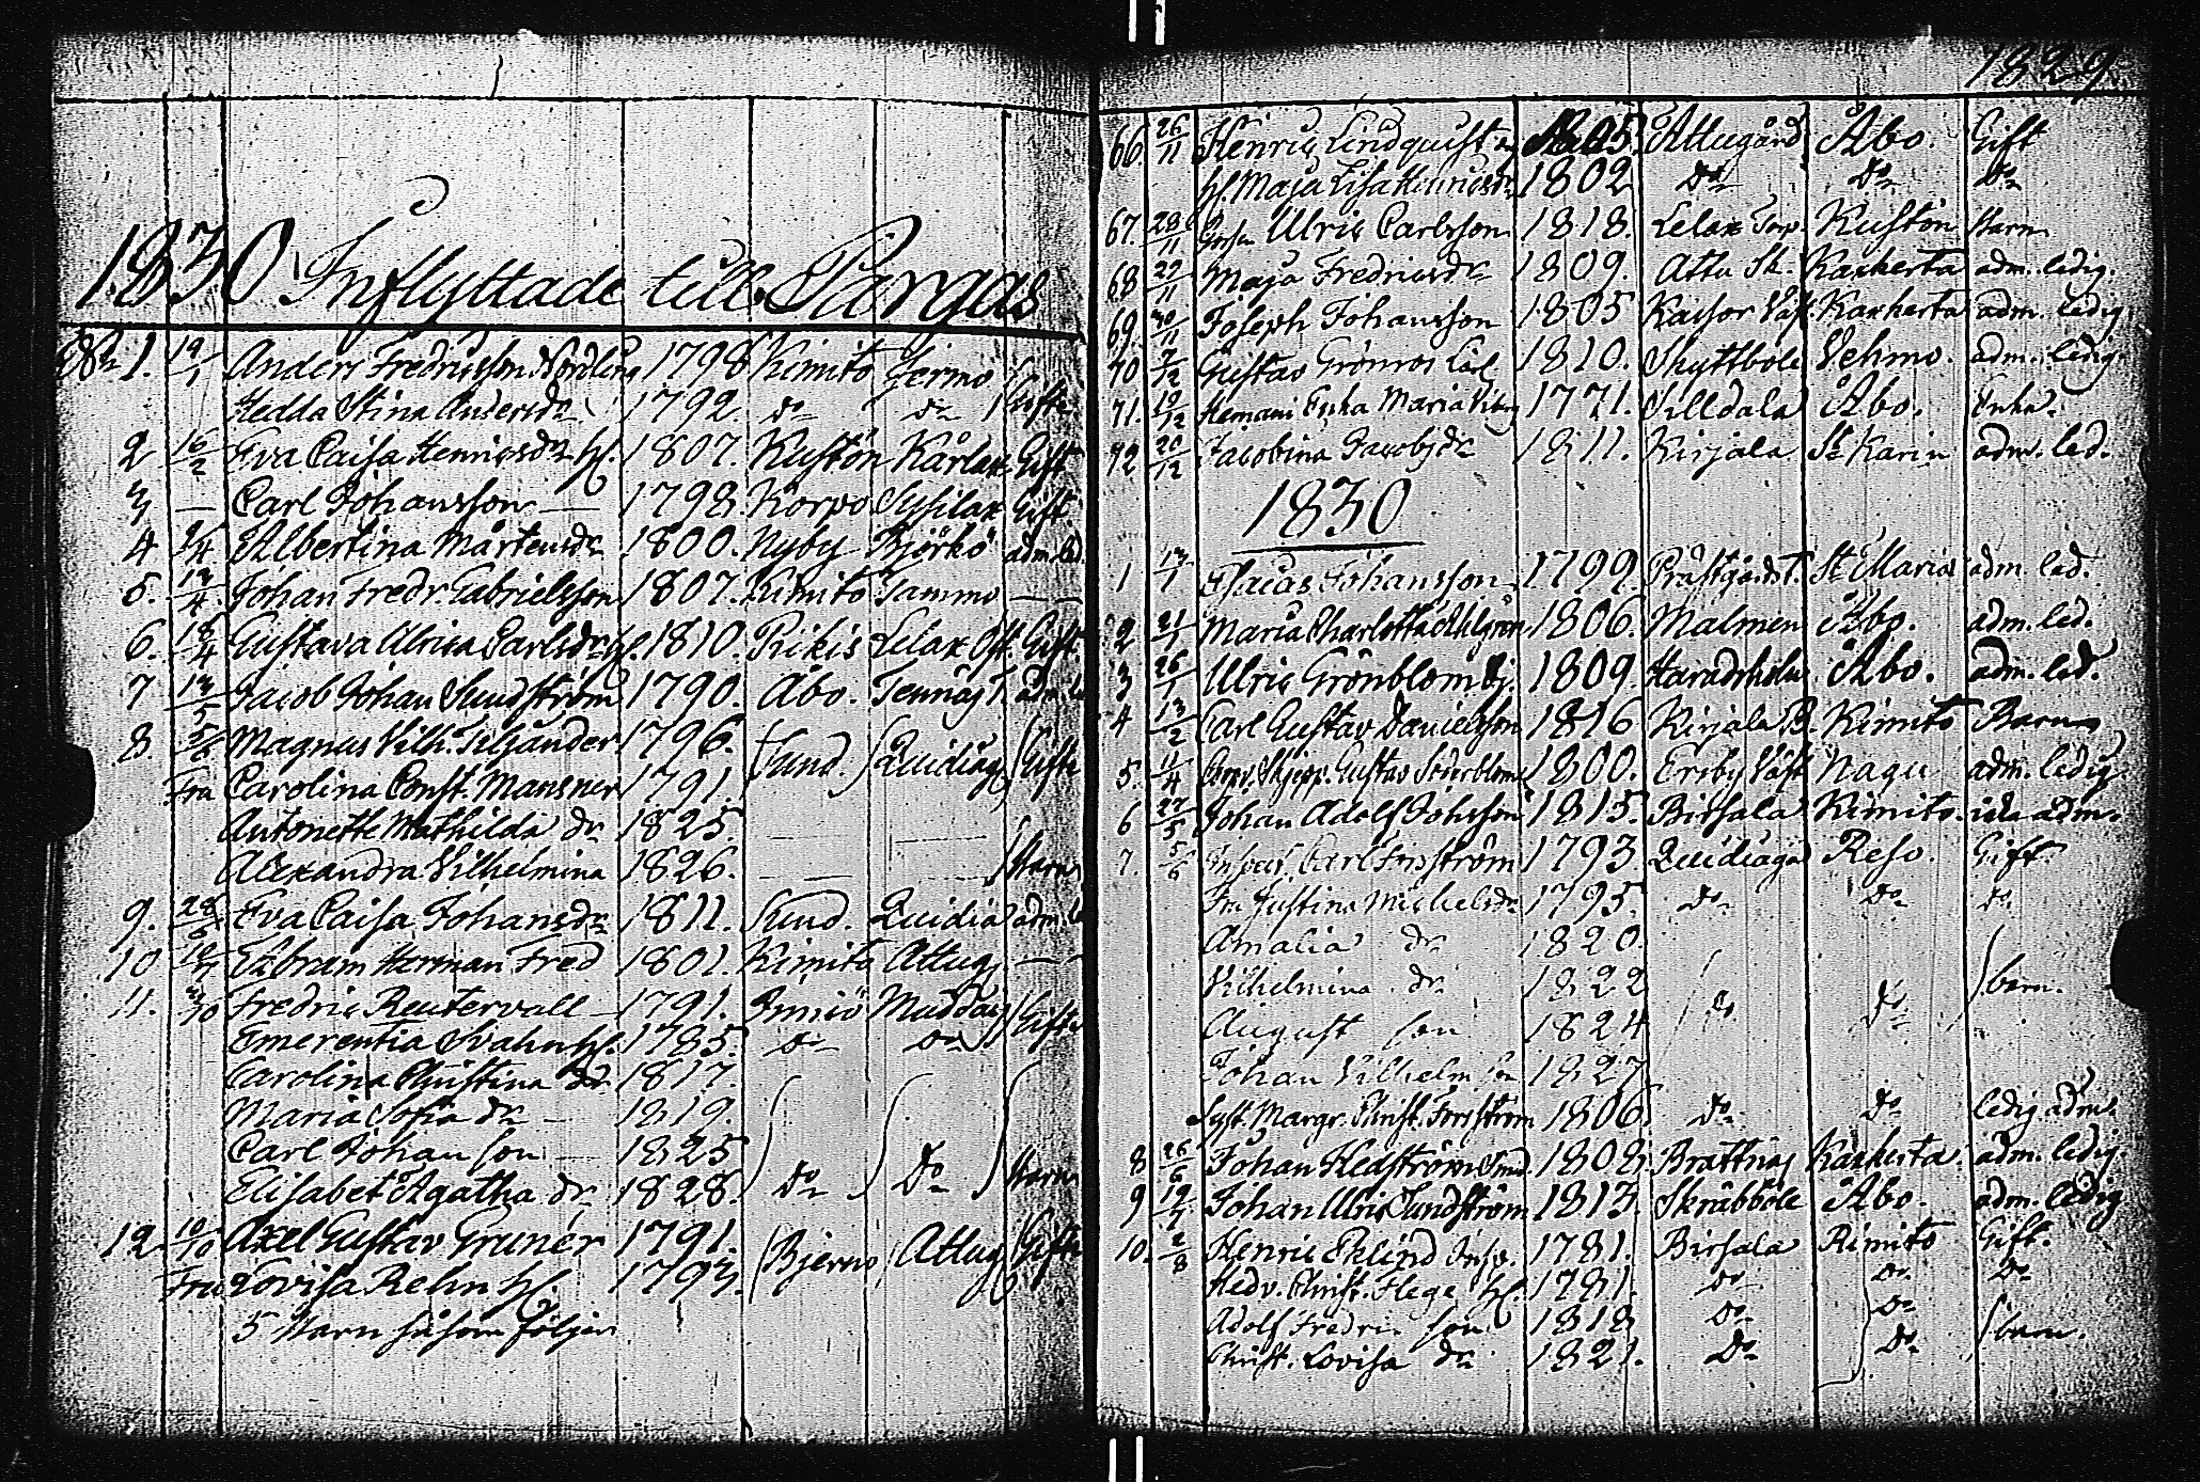 1830 Inflyttade till Pargas
1. 19/1 Anders Fredricsson Nordling 1798 Kimito Germo
Hedda Stina Andersdr 1792. do do Gifte
2 16/2 Eva Caisa Henricsdr h. 1807. Kustön Kårlax Gift
3 — Carl Johansson — 1798 Korpo Sysilax Gift
4 Albertina Mårtensdr 1800. Nyby Björkö adm. led.
5. 13/4 Johan Fredr. Gabrielsson 1807. Kimito Tammo —
6. 18/4 Gustava Ulrica Carlsdr h. 1810. Pikis Lelax Öst. Gift.
7 13/5 Jacob Johan Sundström 1790. Åbo. Tennäs T. adm. le
8. 5/6 Magnus Vilh. Tiljander 1796. Sund. Quidiag Gifte
Fru Carolina Const. Mansner 1791.
Antonette Mathilda dr 1825. — —
Alexandra Vilhelmina 1826. — — Barn
9. 28/6 Eva Caisa Johansdr 1811. Sund. Quidia adm. l
10 Abram Herman Fred 1801. Kimito Attug —
11. 3/10 Fredric Reutervall — 1791. Finnö Muddais Gifte
Emerentia Svahn h. 1785. do do
Carolina Christina dr 1817.
Maria Sofia dr — 1819.
Carl Johan son — 1825
Elisabet Agatha dr 1828. do do Barn
12. 10/10 Axel Gustav Grunér 1791. Bjerno Attug Gifte
Fru Lovisa Rehn h. 1793.
5 Barn såsom följer
1829.
66. 26/11 Henric Lindquist 1805. Attugård Åbo. Gift
h. Maja Lisa Henricsdr 1802 do do do
67. 28/11 Gossen Ulric Carlsson 1818. Lelax Torp. Kustön Barn
68 29/11 Maja Fredricsdr 1809. Attu Sk. Kaxkerta adm. ledig.
69. 30/11 Joseph Johansson 1805 Kaisor Väst. Kaxkerta adm. ledig
70 7/12 Gustav Grönros 1810. Skyttbole Vehmo. adm. ledig.
71. 19/12 Enka Maria 1771. Silldala Åbo. Enka.
72 20/12 Jacobina Jacobsdr 1811. Kirjala St Karin adm. led.
1830
1 13/1 Esaias Johansson 1799. Prästgårdst. St Maria adm. led.
2 21/1 Maria Charlotta Ahlgren 1806. Malmen Åbo. adm. led.
3 26/1 Ulric Grönblom 1809. Haradsholm Åbo. adm. led.
4 13/2 Carl Gustav Danielsson 1816 Kirjala B. Kimito Barn
5. 11/4 Skepp. Gustav Söderblom 1800. Ersby Väst Nagu adm. ledig
6 27/5 Johan Adolf Johsson 1815. Birsala Kimito. icke adm.
7. 5/6 Inspect. Carl Forsström 1793. Quidiaga Reso. Gift.
Fru Justina Michelsdr 1795. do do do
Amalia dr 1820.
Vilhelmina dr 1822
August son 1824 do do barn.
Johan Vilhelm son 1827
Syst. Margr. Christ. Forsström 1806. do do ledig adm.
8 26/6 Johan Hedström Smed. 1808. Brattnäs Kaxkerta. adm. ledig
9 19/7 Johan Ulric Sundström 1813. Skräbböle Åbo. adm. ledig
10. 2/8 Henric Eklind Insp. 1781. Birsala Kimito Gift.
Hedv. Christ. Flege h. 1781. do do do
Adolf Fredric son 1818 do do barn.
Christ. Lovisa dr 1821. do do